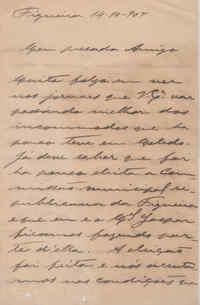 Figueira 14-10-907
Meu presado Amigo
Muito folgo em ver
nos jornaes que V. Exª vae
passando melhor dos
incommodos que ha
pouco teve em
Já deve saber que foi
ha pouco eleita a Com
missão municipal re
publicana da Figueira
e que eu e o Gaspar
ficamos fazendo par
te d'ella. A eleição
foi feita e nós
nas condições